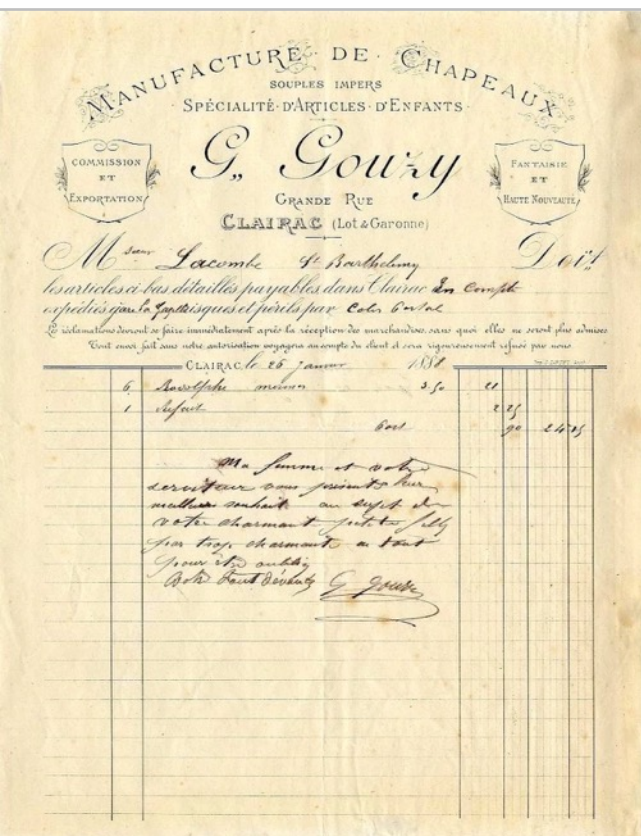 MANUFACTURE DE CHAPEAUX
SOUPLES IMPERS
SPÉCIALITÉ D'ARTICLES D'ENFANTS
COMMISSION
ET
EXPORTATION
G. Gouzy
FANTAISIE
ET
HAUTE NOUVEAUTÉ
GRANDE RUE
CLAIRAC (Lot & Garonne)
M sieur Lacombe St Barthelemy Doit
les articles ci-bas détaillés payables dans Clairac En Compte
expédiés risques et périls par Colis Postal
Les réclamations devront se faire immédiatement après la réception des marchandises, sans quoi elles ne seront plus admises
Tout envoi fait sans notre autorisation voyagera au compte du client et sera rigoureusement refusé par nous
CLAIRAC, le 26 Janvier 1888
6 Rodolphe 3,50 21
1 2 25
Port 90 24 15
Ma femme et votre
serviteur vous présente leur
meilleur souhait au sujet de
votre charmant petite fille
par trop charmante
pour être oublié
Votre tout dévoué G Gouzy